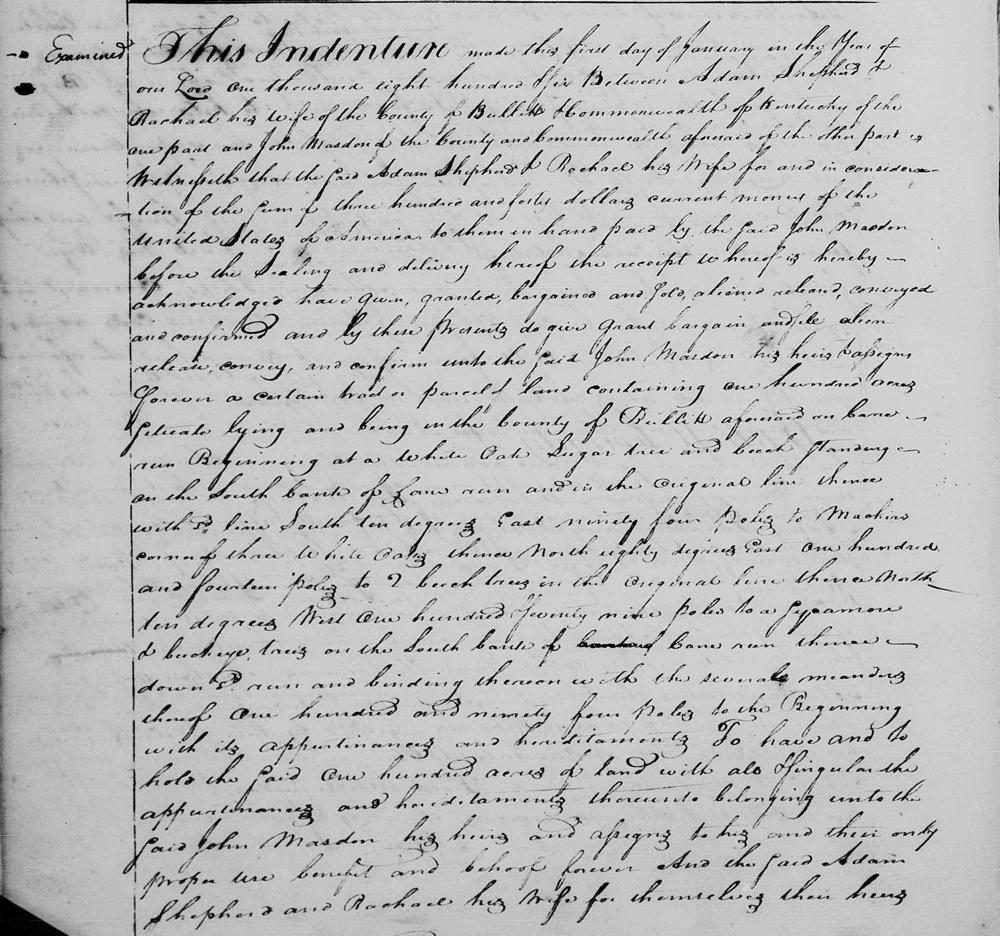 Examined This Indenture made this first day of January in the Year of
our Lord one thousand eight hundred & six Between Adam Shepherd &
Rachael his wife of the County of Bullitt & Commonwealth of Kentucky of the
one part and John Masdon of the County and Commonwealth aforesaid of the other part
Witnesseth that the said Adam Shepherd & Rachael his Wife for and in considera-
tion of the sum of three hundred and forty dollars current money of the
United States of America to them in hand paid by the said John Masdon
before the Sealing and delivery hereof the receipt whereof is hereby
acknowledged have given, granted, bargained and sold, aliened released, conveyed
and confirmed and by these presents do give Grant bargain and sell alien
release, convey, and confirm unto the said John Masdon his heirs & assigns
forever a certain tract or parcel of land containing one hundred acres
situate lying and being in the County of Bullitt aforesaid on Cane
run Beginning at a White Oak Sugar tree and beech standing
on the South bank of Cane run and in the Original line thence
with sd. line South ten degrees East ninety four poles to
corner of three White Oaks thence North eighty degrees East One hundred
and fourteen poles to 2 beech trees in the Original line thence North
ten degrees West One hundred & seventy nine poles to a Sycamore
& buckeye trees on the South bank of Cane run thence
down sd. run and binding thereon with the several meanders
thereof One hundred and ninety four poles to the Beginning
with its appurtinances and hereditaments To have and to
hold the said One hundred acres of land with all & singular the
appurtinances and hereditaments thereunto belonging unto the
said John Masdon his heirs and assigns to his and their only
proper use benefit and behoof forever And the said Adam
Shepherd and Rachael his Wife for themselves their heirs